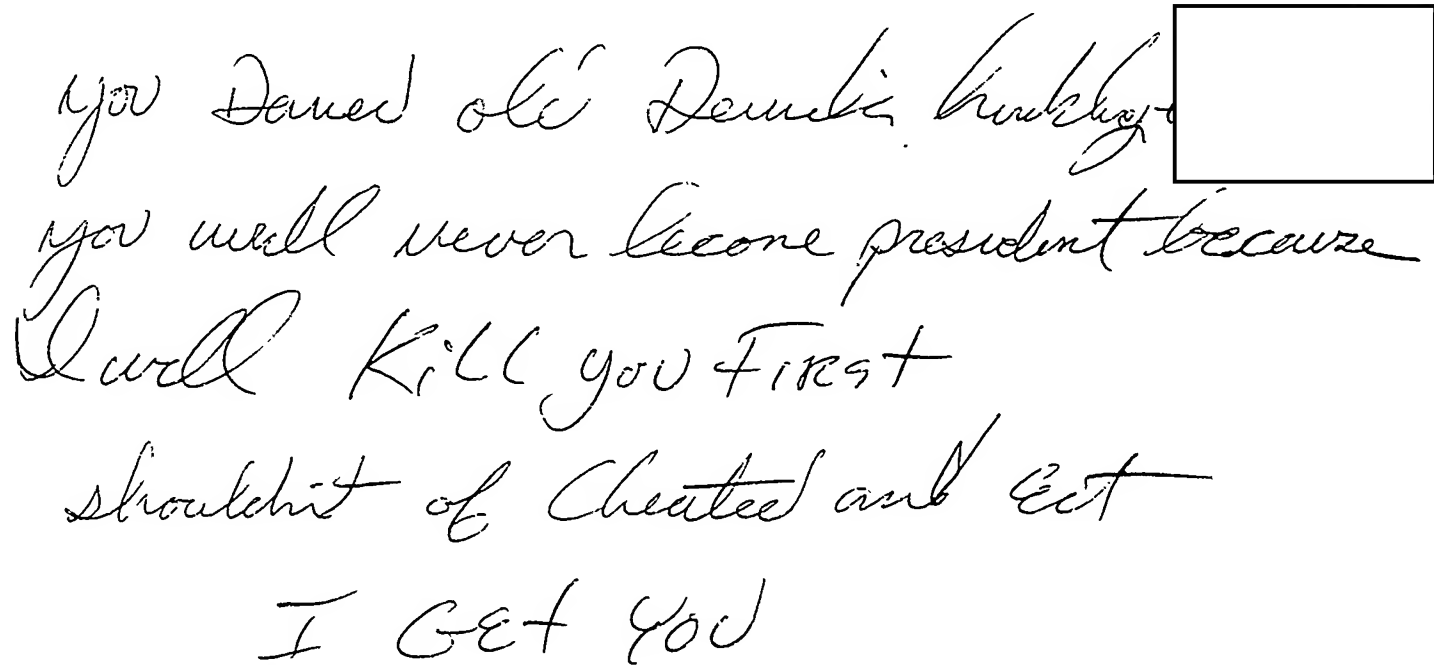 you Damed old
you will never become president because
I will Kill you First
shouldn't of Cheated and Ect
I GET YOU